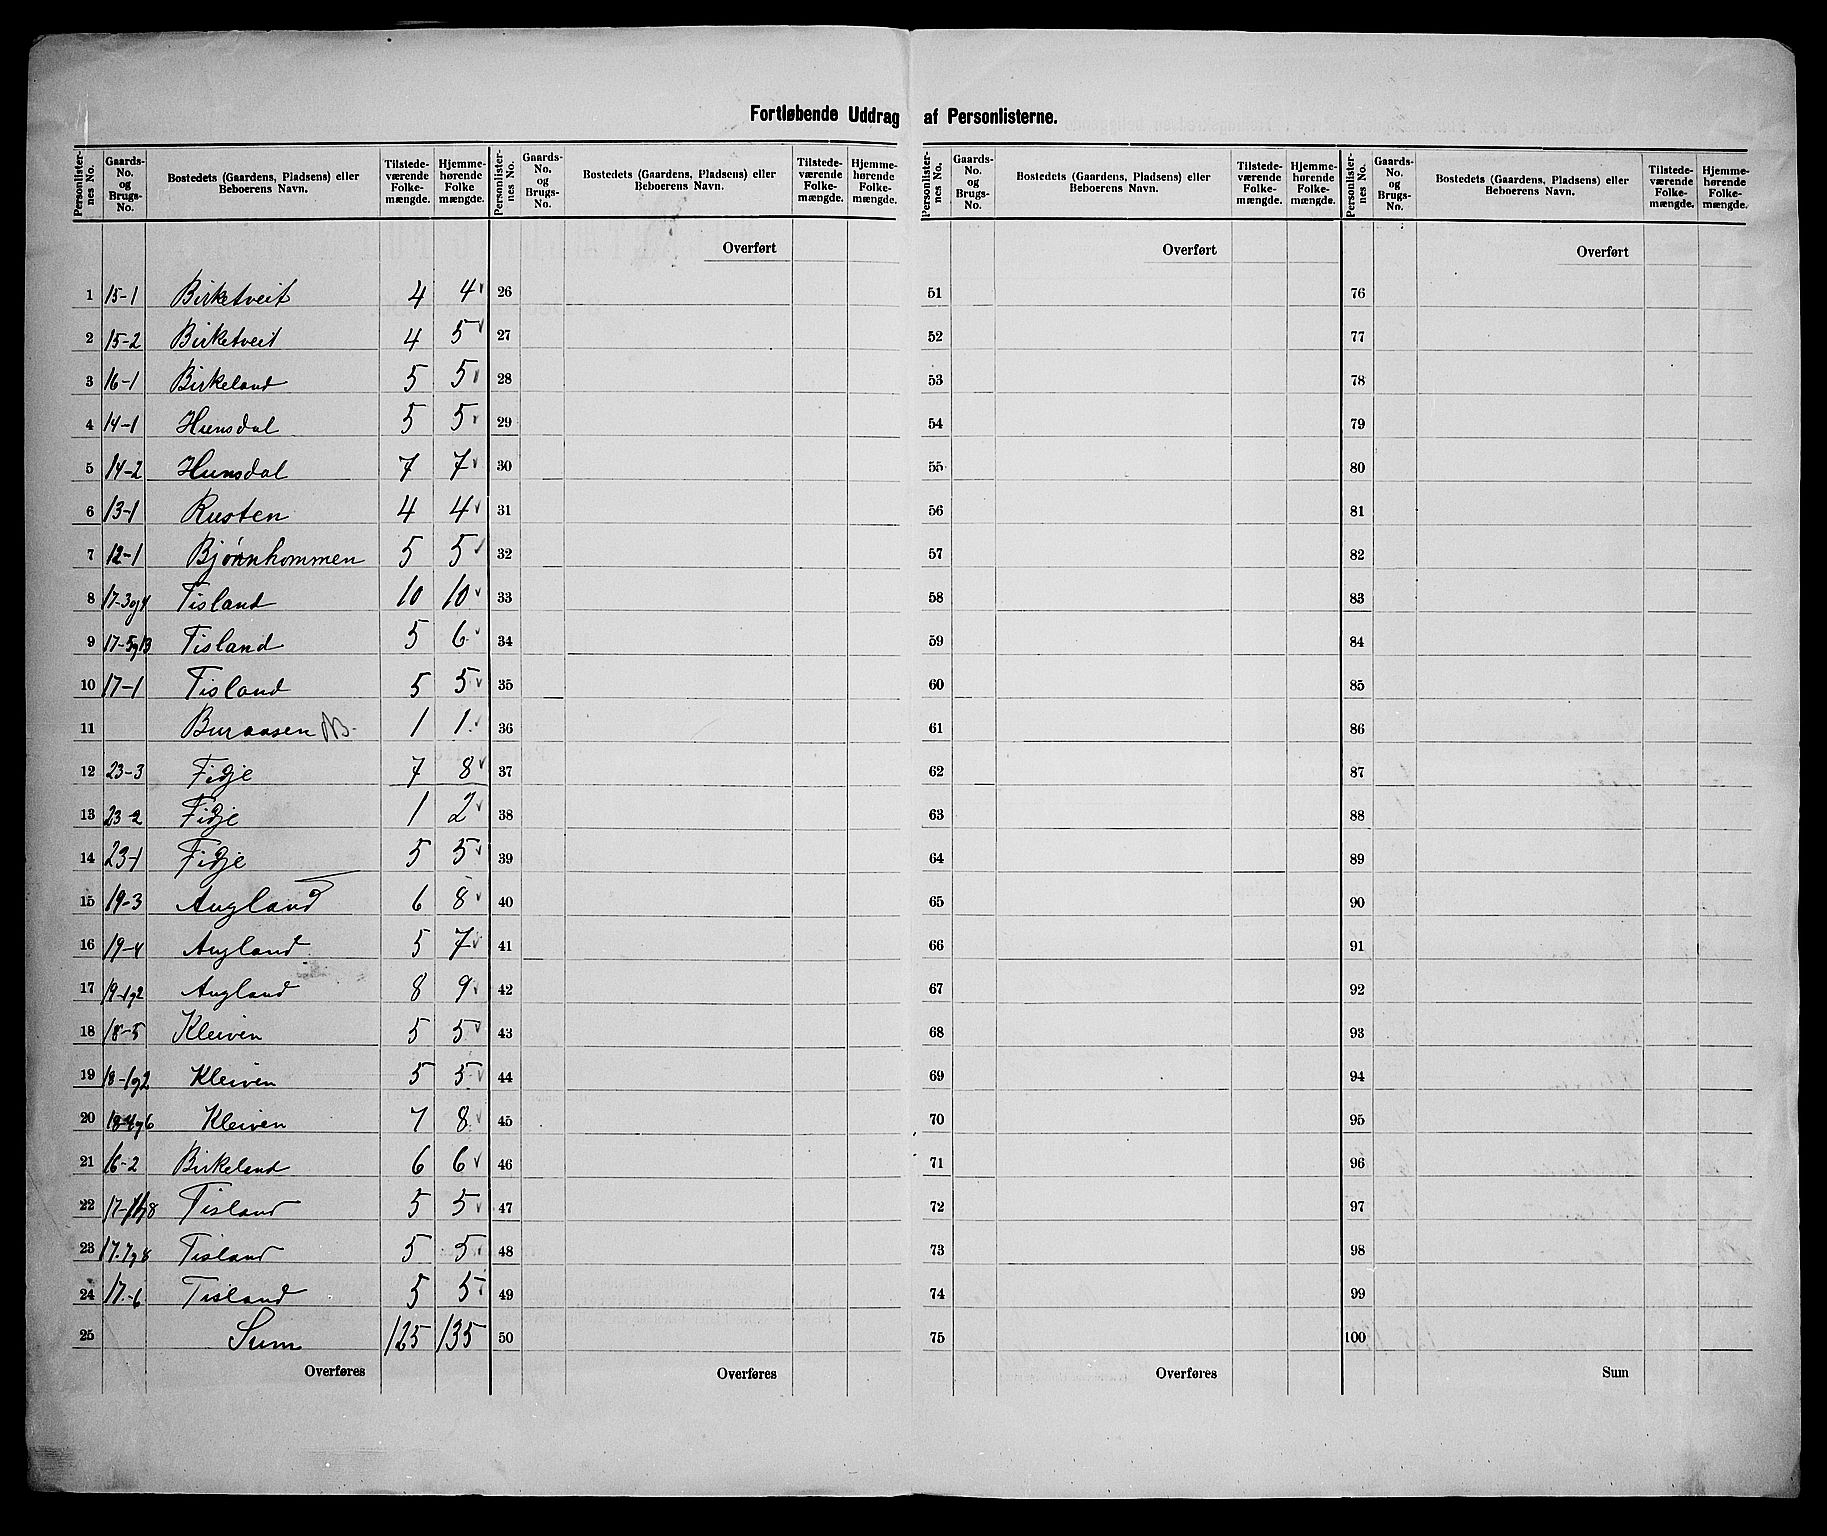 Fortløbende Uddrag af Personlisterne.
Personlister-nes No. Gaards-No. og Brugs-No. Bostedets (Gaardens, Pladsens) eller Beboerens Navn. Tilstede-værende Folke-mængde. Hjemme-hørende Folke mængde. Personlister-nes No. Gaards-No. og Brugs-No. Bostedets (Gaardens, Pladsens) eller Beboerens Navn. Tilstede-værende Folke-mængde. Hjemme-hørende Folke-mængde. Personlister-nes No. Gaards-No. og Brugs-No. Bostedets (Gaardens, Pladsens) eller Beboerens Navn. Tilstede-værende Folke-mængde. Hjemme-hørende Folke-mængde. Personlister-nes No. Gaards-No. og Brugs-No. Bostedets (Gaardens, Pladsens) eller Beboerens Navn. Tilstede-værende Folke-mængde. Hjemme-hørende Folke-mængde.
Overført Overført Overført
1 15-1 Birketveit 4 4 26 51 76
2 15-2 Birketveit 4 5 27 52 77
3 16-1 Birkeland 5 5 28 53 78
4 14-1 Hunsdal 5 5 29 54 79
5 14-2 Hunsdal 7 7 30 55 80
6 13-1 Rusten 4 4 31 56 81
7 12-1 Bjønnhommen 5 5 32 57 82
8 17-3og4 Tisland 10 10 33 58 83
9 17-5g13 Tisland 5 6 34 59 84
10 17-1 Tisland 5 5 35 60 85
11 Buraasen NB. 1 1 36 61 86
12 23-3 Fidje 7 8 37 62 87
13 23-2 Fidje 1 2 38 63 88
14 23-1 Fidje 5 5 39 64 89
15 19-3 Augland 6 8 40 65 90
16 19-4 Augland 5 7 41 66 91
17 19-1g2 Augland 8 9 42 67 92
18 18-5 Kleiven 5 5 43 68 93
19 18-1g2 Kleiven 5 5 44 69 94
20 18-4g6 Kleiven 7 8 45 70 95
21 16-2 Birkeland 6 6 46 71 96
22 Tisland 5 5 47 72 97
23 17.7g8 Tisland 5 5 48 73 98
24 17.-6 Tisland 5 5 49 74 99
25 Sum 125 135 50 75 100
Overføres Overføres Overføres Sum